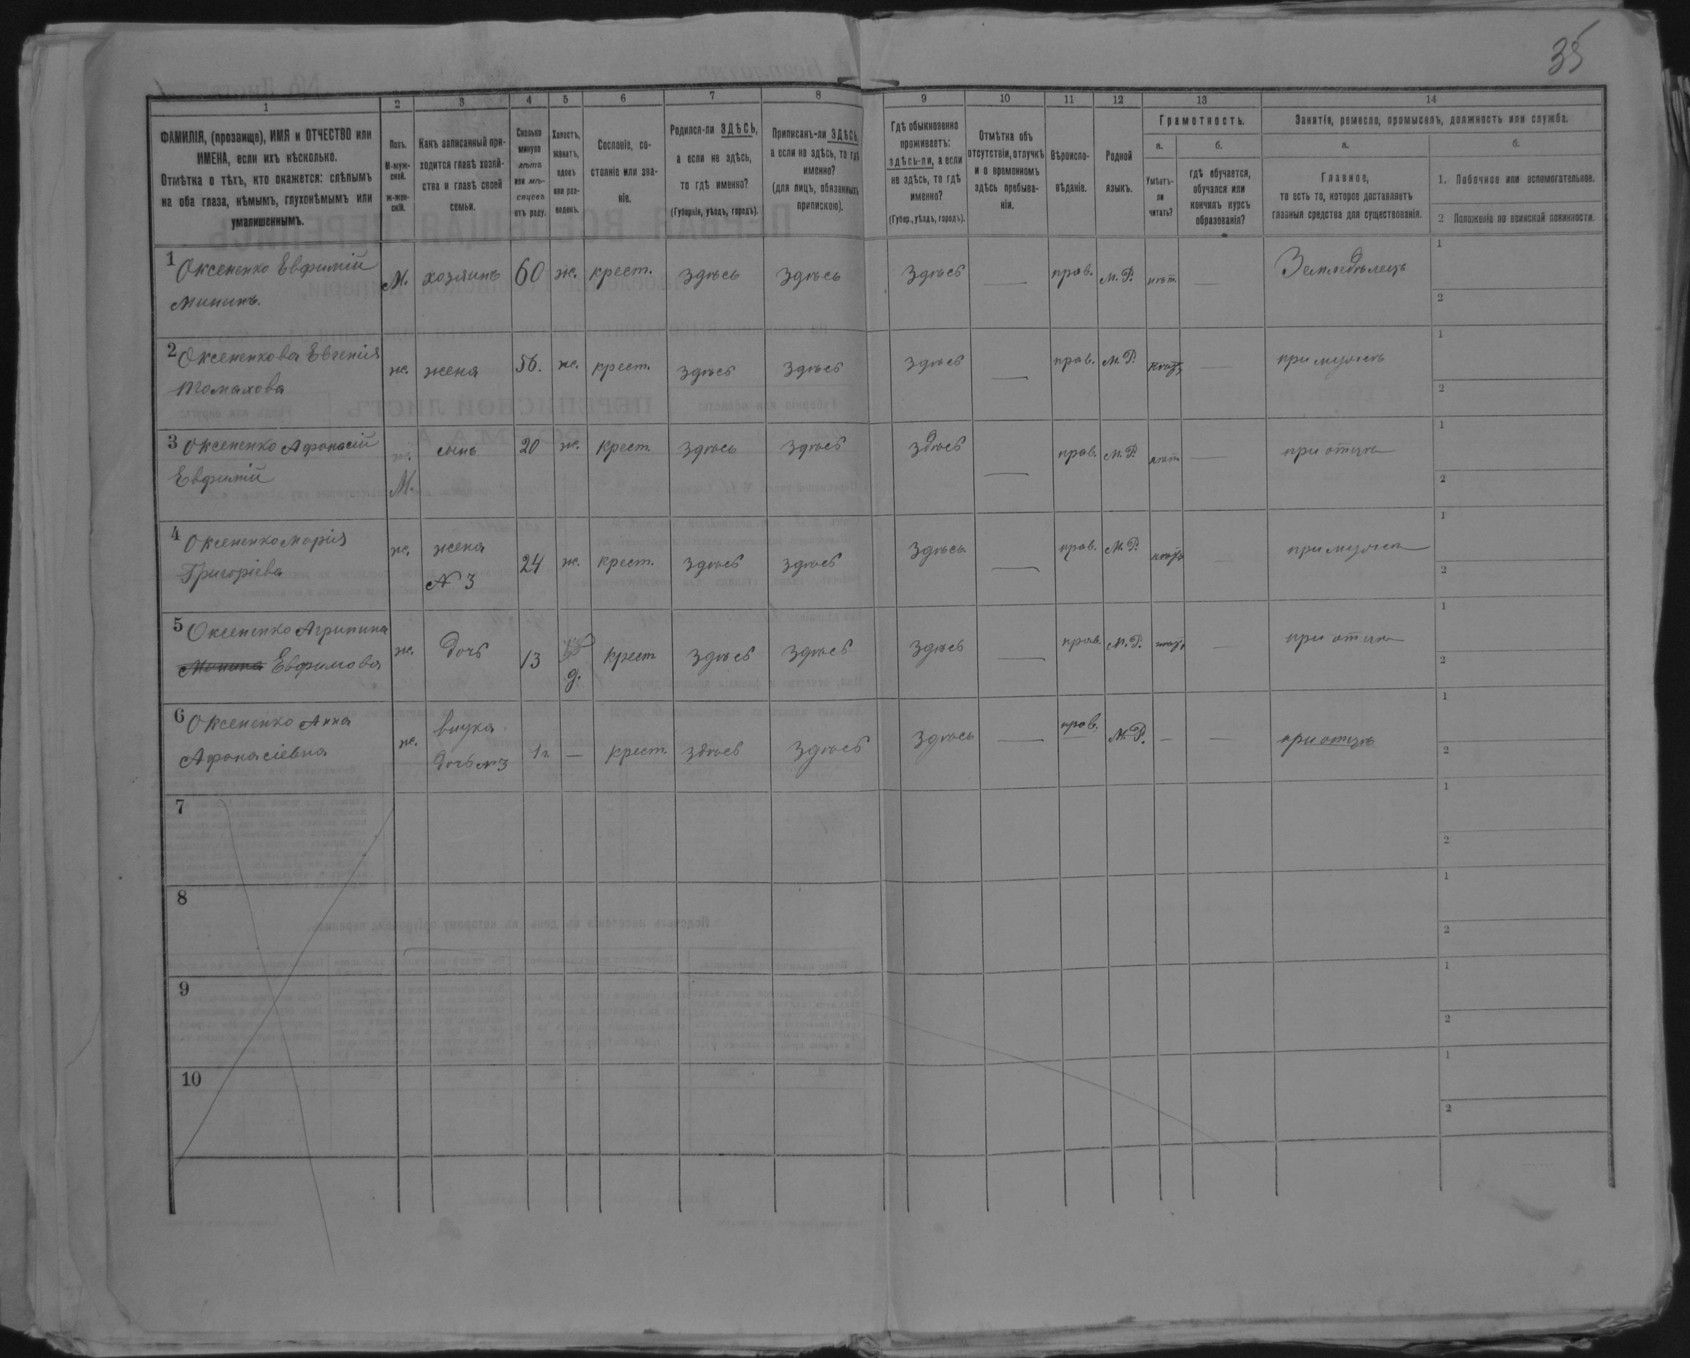 35
1 2 3 4 5 6 7 8 9 10 11 12 13 14
ФАМИЛІЯ, (прозвище), ИМЯ и ОТЧЕСТВО или
ИМЕНА, если ихъ нѣсколько.
Отмѣтка о тѣхъ, кто окажется: слѣпымъ
на оба глаза, нѣмымъ, глухонѣмымъ или
умалишеннымъ.
Полъ.
М-муж-
ской.
Ж-жен-
скій.
Какъ записанный при-
ходится главѣ хозяй-
ства и главѣ своей
семьи.
Сколько
минуло
лѣтъ
или мѣ-
сяцевъ
отъ роду.
Холостъ,
женатъ,
вдовъ
или раз-
веденъ.
Сословіе, со-
стояніе или зва-
ніе.
Родился-ли ЗДѢСЬ,
а если не здѣсь,
то гдѣ именно?
(Губернія, уѣздъ, городъ).
Приписанъ-ли ЗДѢСЬ,
а если не здѣсь, то гдѣ
именно?
(для лицъ, обязанныхъ
припискою).
Гдѣ обыкновенно
проживаетъ:
здѣсь-ли, а если
не здѣсь, то гдѣ
именно?
(Губер., уѣздъ, городъ).
Отмѣтка объ
отсутствіи, отлучкѣ
и о временномъ
здѣсь пребыва-
ніи.
Вѣроиспо-
вѣданіе.
Родной
языкъ.
Грамотность.
а.
Умѣетъ-
ли
читать?
б.
гдѣ обучается,
обучался или
кончилъ курсъ
образованія?
Занятіе, ремесло, промыселъ, должность или служба.
а.
Главное,
то есть то, которое доставляетъ
главныя средства для существованія.
б.
1. Побочное или вспомогательное.
2 Положеніе по воинской повинности.
1 Оксененко Евфимій
Мининъ
М. хозяинъ 60 ж. крест. здѣсь здѣсь здѣсь — прав. М.Р. нѣт — Земледѣлецъ 1
2
2 Оксененкова Евгенія
Томахова
ж. жена 56. ж. крест. здѣсь здѣсь здѣсь — прав. М.Р. — при мужѣ 1
2
3 Оксененко Афонасій
Евфимій
М. сынъ 20 ж. крест. здѣсь здѣсь здѣсь — прав. М.Р. нѣт — при отцѣ 1
2
4 Оксененко Марія
Григоріева
ж. жена
N 3 24 ж. крест. здѣсь здѣсь здѣсь — прав. М.Р. — при мужѣ 1
2
5 Оксененко Агрипина
Евфимова
ж. дочь 13 д. крест здѣсь здѣсь здѣсь — прав. М.Р. — при отцѣ 1
2
6 Оксененко Анна
Афонасіевна
ж. внука
дочь N 3 1 г. — крест. здѣсь здѣсь здѣсь — прав. М.Р. — — при отцѣ 1
2
7 1
2
8 1
2
9 1
2
10 1
2